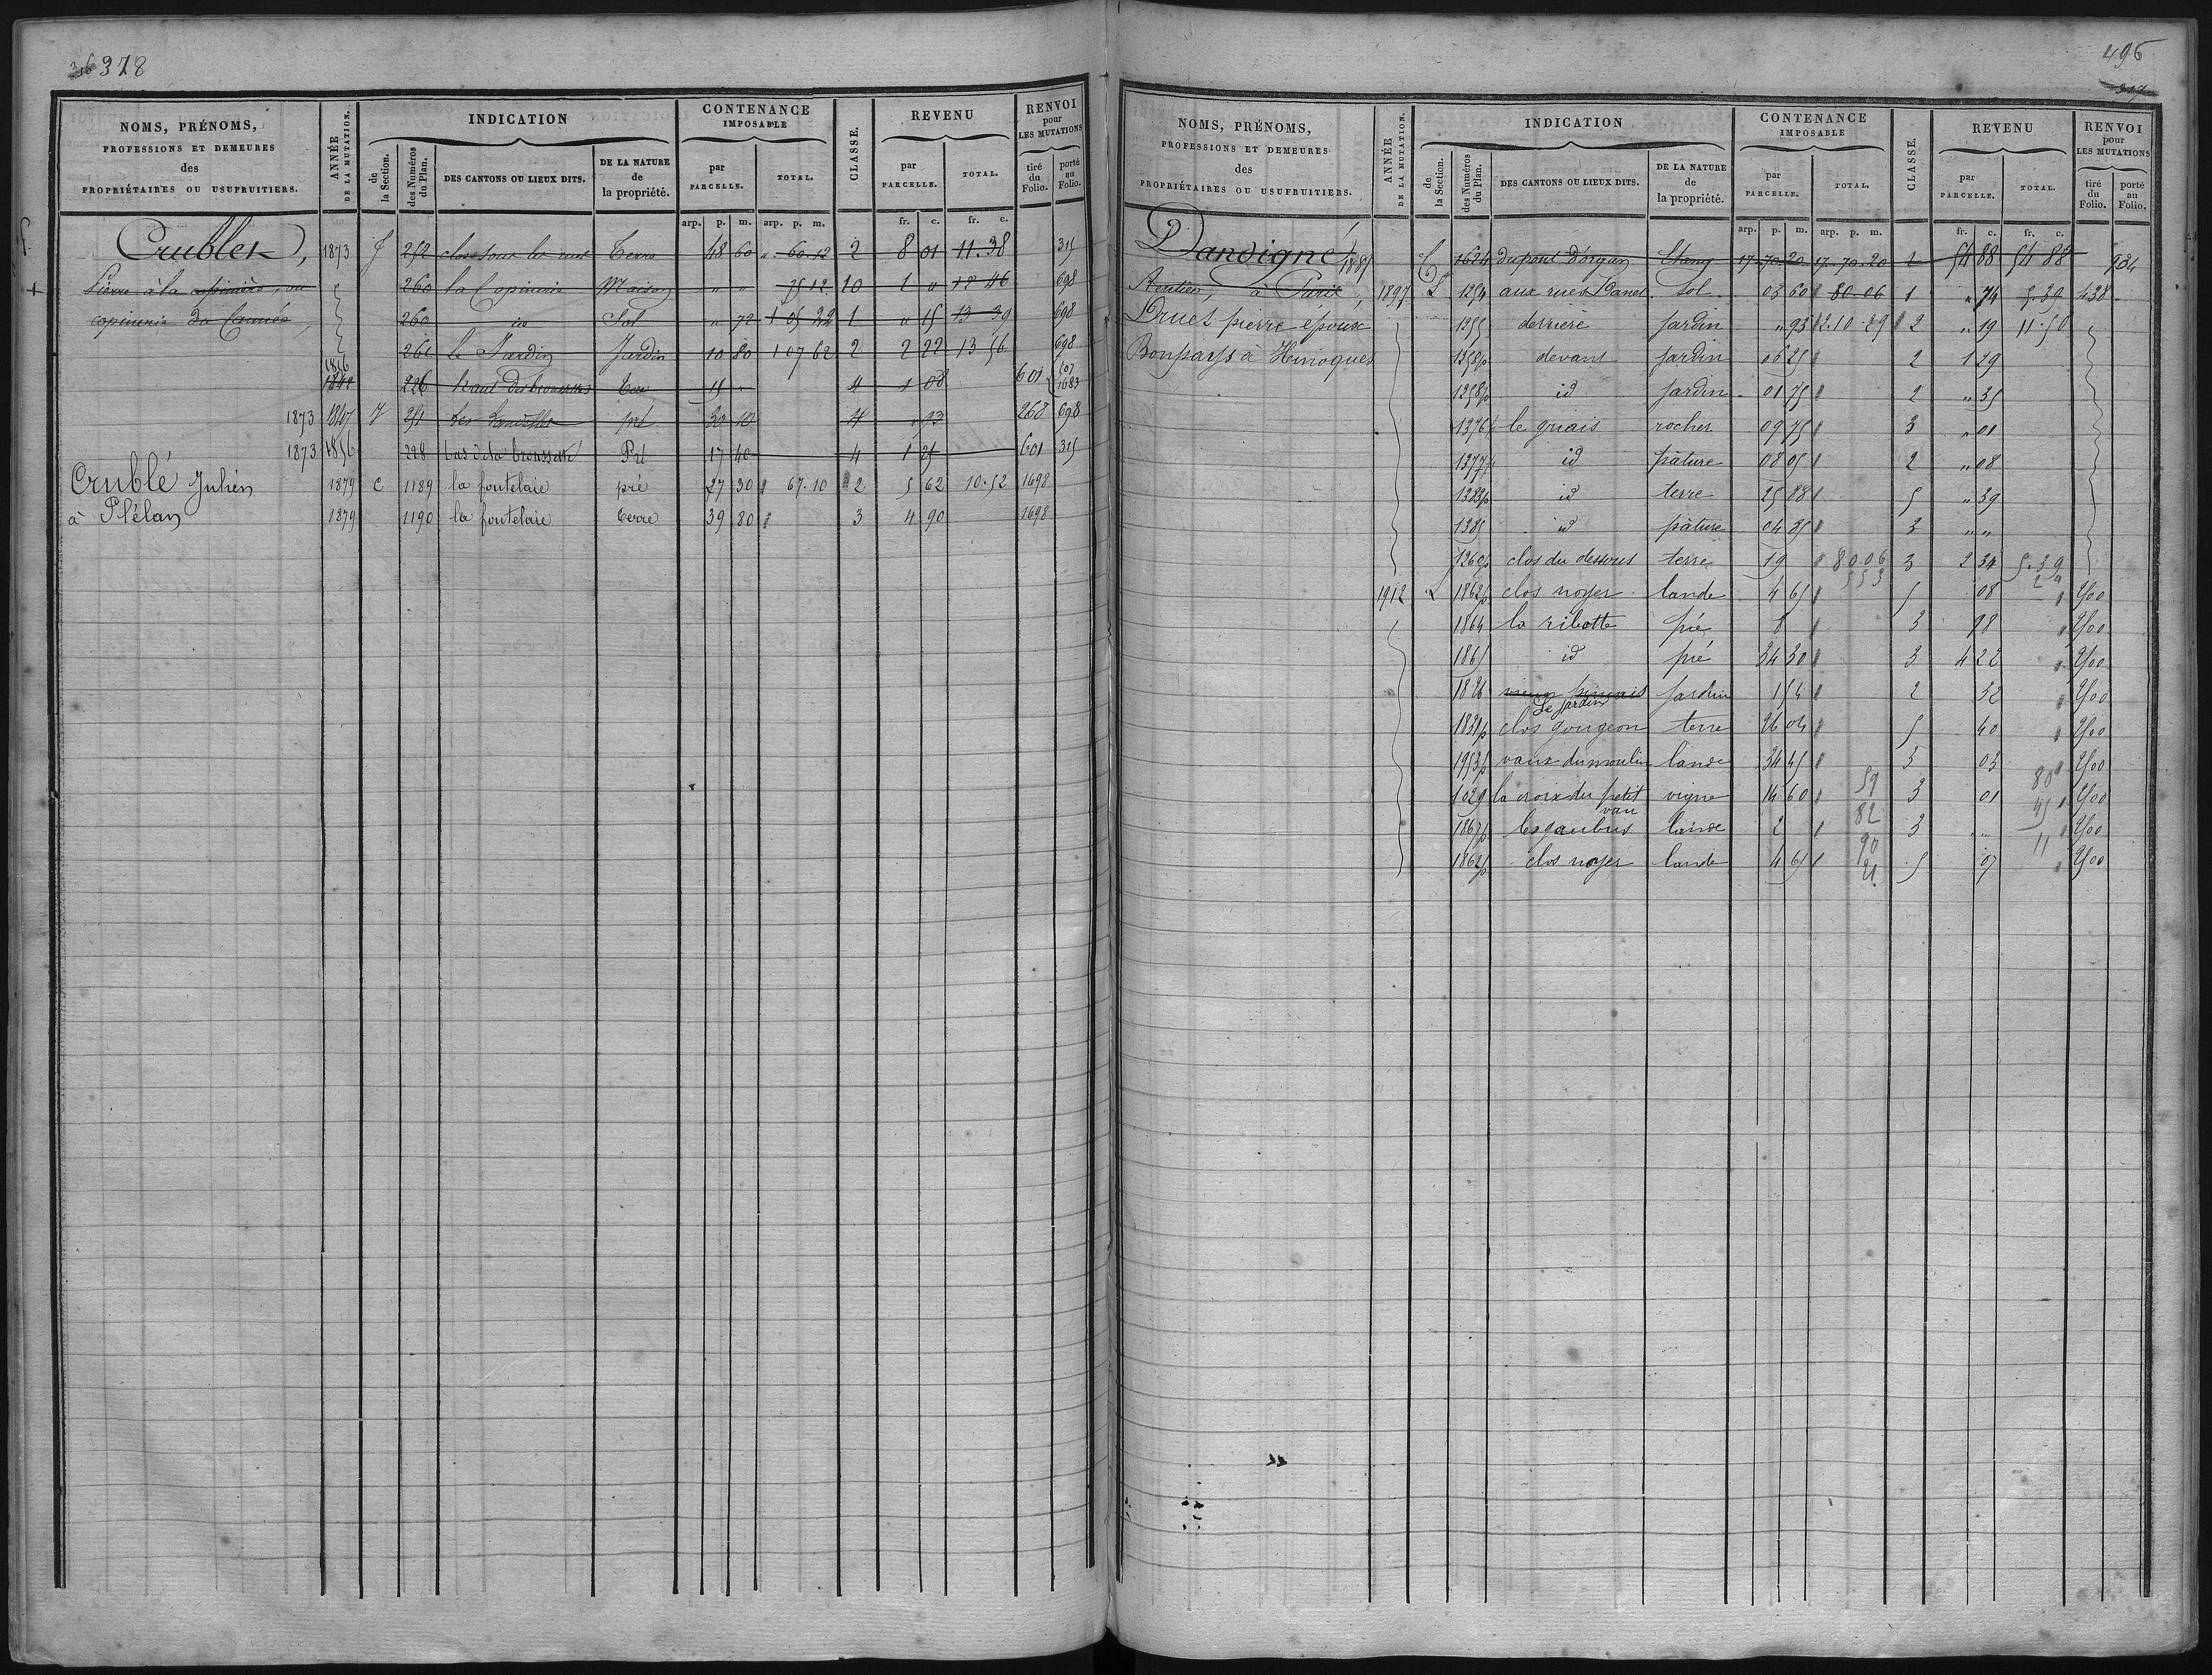 316 378
NOMS, PRÉNOMS,
PROFESSIONS ET DEMEURES
des
PROPRIÉTAIRES OU USUFRUITIERS.
ANNÉE
DE LA MUTATION.
INDICATION
de
la Section.
des Numéros
du Plan.
DES CANTONS OU LIEUX DITS.
DE LA NATURE
de
la propriété.
CONTENANCE
IMPOSABLE
par
PARCELLE.
TOTAL.
CLASSE.
REVENU
par
PARCELLE.
TOTAL.
RENVOI
pour
LES MUTATIONS
tiré
du
Folio.
porté
au
Folio.
arp. p. m. arp. p. m. fr. c. fr. c.
Crublet, 1873 J 252 clos sous les rues Terre 48 60 " 60.12 2 8 01 11.38 315
Pierre à la copinerie, ou 260 la Copinerie Maison " " 75 12 10 1 " 12 46 698
copinerie du Cannée, 260 id Sol " 72 1 05 22 1 " 15 13 39 698
261 le Jardin Jardin 10 80 1 07 62 2 2 22 13 56 698
1856
1842 226 haut des brousses terre 15 " 4 1 08 601 507
1683
1873 1847 J 251 les Landelles pré 30 10 4 " 93 268 698
1873 1856 228 bas de la brousse Pré 17 40 4 1 25 601 315
Crublé Julien 1879 C 1189 la foutelaie pré 27 30 67.10 2 5 62 10.52 1698
à Plélan 1879 1190 la foutelaie terre 39 80 3 4 90 1698
496
317
NOMS, PRÉNOMS,
PROFESSIONS ET DEMEURES
des
PROPRIÉTAIRES OU USUFRUITIERS.
ANNÉE
DE LA MUTATION.
INDICATION
de
la Section.
des Numéros
du Plan.
DES CANTONS OU LIEUX DITS.
DE LA NATURE
de
la propriété.
CONTENANCE
IMPOSABLE
par
PARCELLE.
TOTAL.
CLASSE.
REVENU
par
PARCELLE.
TOTAL.
RENVOI
pour
LES MUTATIONS
tiré
du
Folio.
porté
au
Folio.
arp. p. m. arp. p. m. fr. c. fr. c.
Dandigné 1885 C 1624 du pont d'organ Etang 17 70 20 17.70.20 1 54 88 54 88 934
Rentier, à Paris, 1897 L 1254 aux rues Danet sol 03 60 80.06 1 " 74 5.39 438
Druet pierre époux 1255 derrière jardin " 93 2.10.29 2 " 19 11.50
Bonpays à Henoques 1258p devant jardin 06 25 2 1 29
1258p id jardin 01 75 2 " 35
1376p le griais rocher 09 75 3 " 01
1377p id pâture 08 05 2 " 08
1383p id terre 25 88 5 " 39
1385 id pâture 04 85 3 " "
1260p clos du dessous terre 19 80.06 3 2 34 5.39
1912 L 1862p clos noyer lande 4 65 553 5 08 2 " 900
1864 la ribotte pré 8 3 98 900
1865 id pré 34 30 3 4 22 900
1826 jardin 1 54 2 32 900
Le jardin
1831p clos gougeon terre 26 04 5 40 900
1953p vaux du moulin lande 34 45 3 03 900
1029 la croix du petit vigne 14 60 59 3 01 80 900
vau
1867p les gaubus lande 2 82 3 " 45 900
1862p clos noyer lande 4 65 90 5 07 11 900
21